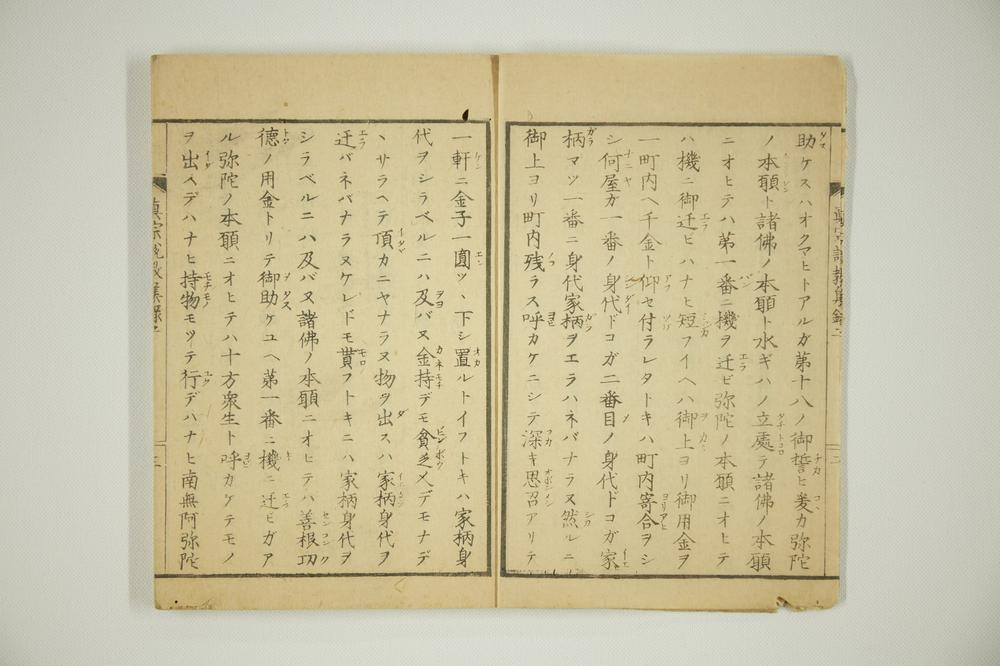 助ケスハオクマヒトアルガ第十八ノ御誓ヒ爰カ弥陀
ノ本願ト諸佛ノ本願ト水ギハノ立處テ諸佛ノ本願
ニオヒテハ第一番ニ機ヲ迁ビ弥陀ノ本願ニオヒテ
ハ機ニ御迁ビハナヒ短フイヘハ御上ヨリ御用金ヲ
一町内ヘ千金ト仰セ付ラレタトキハ町内寄合ヲシ
シ何屋ガ一番ノ身代ドコガ二番目ノ身代ドコガ家
柄マツ一番ニ身代家柄ヲエラハネバナラヌ然ルニ
御上ヨリ町内残ラス呼カケニシテ深キ思召アリテ
一軒ニ金子一圓ツヽ下シ置ルトイフトキハ家柄身
代ヲシラベルニハ及バヌ金持デモ貧乏人デモナデ
ヽサラヘテ頂カニヤナラヌ物ヲ出スハ家柄身代ヲ
迁バネバナラヌケレドモ貰フトキニハ家柄身代ヲ
シラベルニハ及バヌ諸佛ノ本願ニオヒテハ善根功
德ノ用金トリテ御助ケユヘ第一番ニ機ニ迁ビガア
ル弥陀ノ本願ニオヒテハ十方衆生ト呼カケテモノ
ヲ出ヘデハナヒ持物モツテ行デハナヒ南無阿弥陀